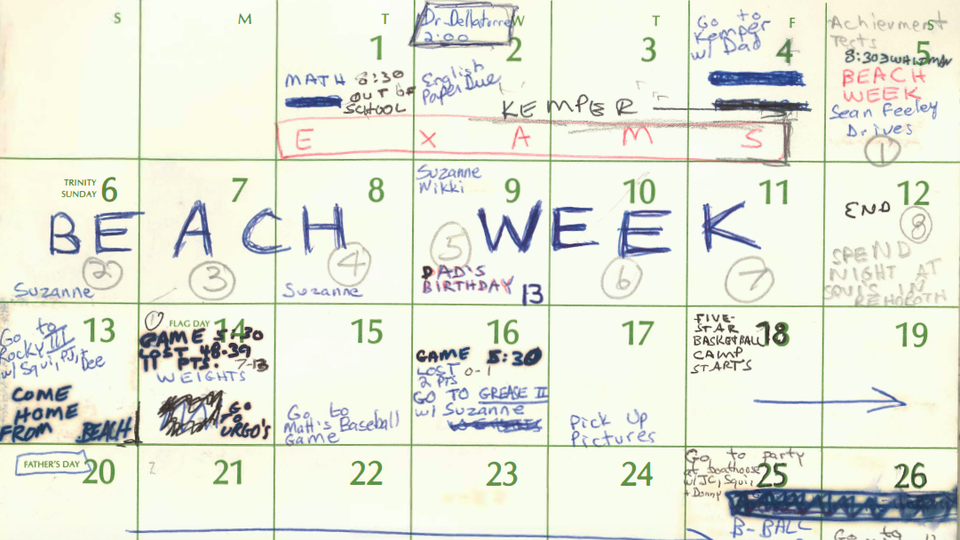 S M T W T F S
Dr. Dellatorre
2:00
1
MATH 8:30
OUT OF
SCHOOL
2
English
Paper Due
3
KEMPER
Go to
Kemper
w/ Dad
4
Achievement
Tests
5
8:30 WHITMAN
BEACH
WEEK
Sean Feeley
Drives
1
E X A M S
TRINITY
SUNDAY 6
7
8
Suzanne
Nikki
9
10
11
12
END
BEACH WEEK
2
3
4
5
6
7
8
Suzanne
Suzanne
DAD'S
BIRTHDAY 13
SPEND
NIGHT AT
SQUI'S IN
REHOBOTH
13
Go to
Rocky III
w/ Squi, PJ,+
Dee
COME
HOME
FROM BEACH
FLAG DAY 14
GAME 5:30
LOST 48-39
11 PTS. 7-13
WEIGHTS
GO
TO
URGO'S
15
Go to
Matt's Baseball
Game
16
GAME 5:30
LOST 0-1
2 PTS
GO TO GREASE II
w/ Suzanne
17
Pick Up
Pictures
18
FIVE-
STAR
BASKETBALL
CAMP
STARTS
19
FATHER'S DAY 20
21
2
22
23
24
25
Go to party
at boathouse
w/ JC, Squi,
+ Donny
B-BALL
26
Go to